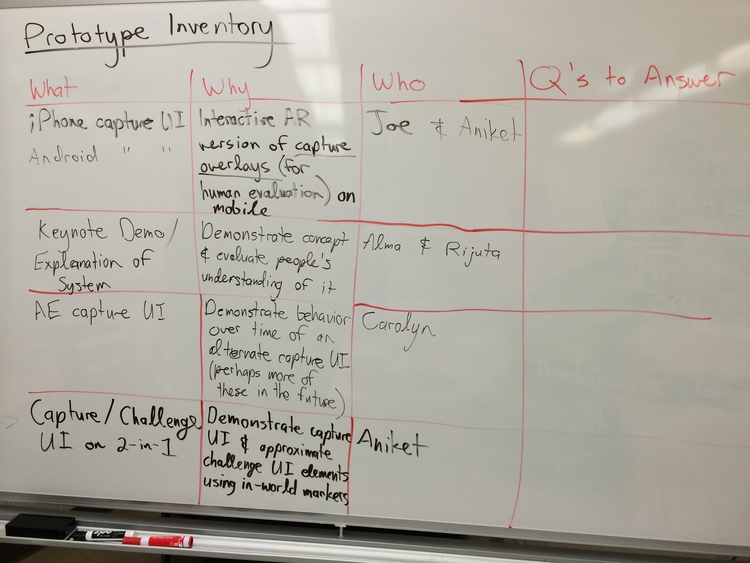 Prototype Inventory
What
Why
Who
Q's to Answer
iPhone capture UI
Android " "
Interactive AR
version of capture
overlays (for
human evaluation) on
mobile
Joe & Aniket
Keynote Demo/
Explanation of
System
Demonstrate concept
& evaluate people's
understanding of it
Alma & Rijuta
AE capture UI
Demonstrate behavior
over time of an
alternate capture UI
(perhaps more of
these in the future)
Carolyn
Capture/Challenge
UI on 2-in-1
Demonstrate capture
UI & approximate
challenge UI elements
using in-world markers
Aniket